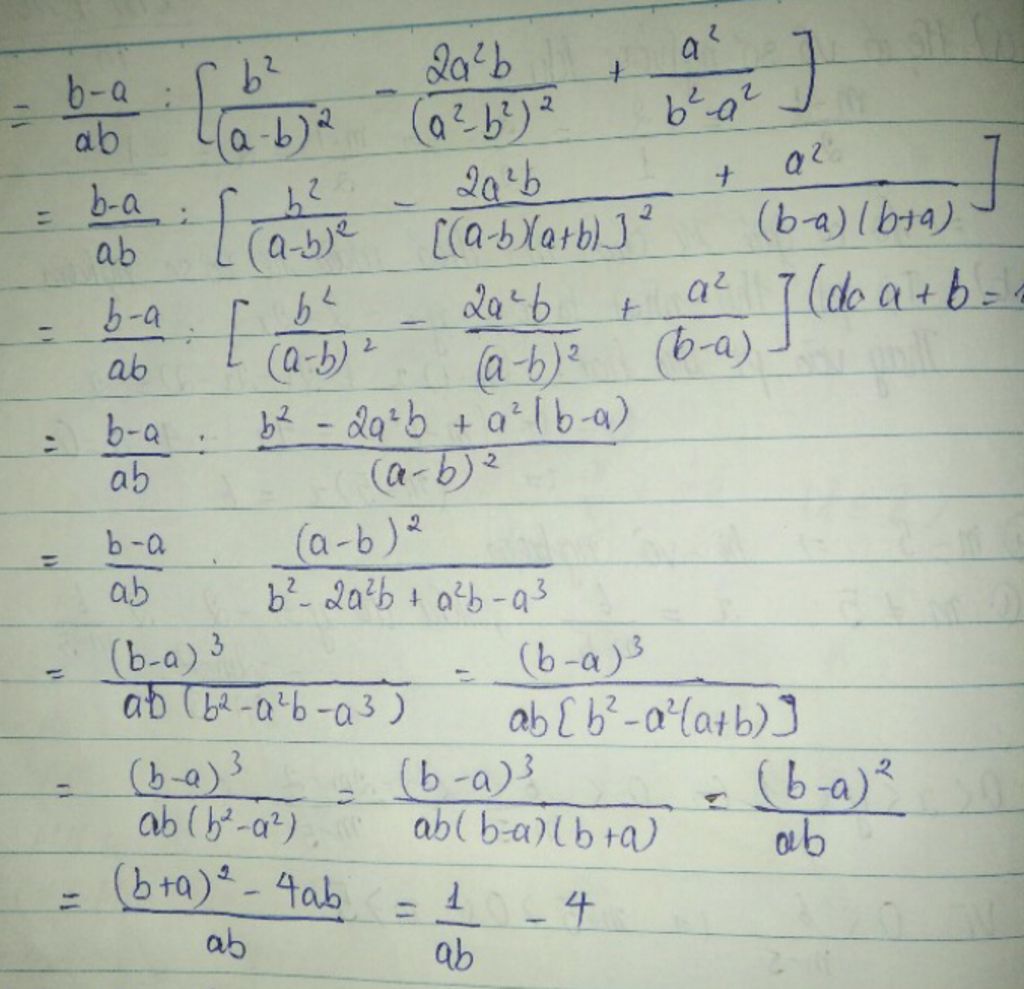 = \frac{b-a}{ab} : [\frac{b^2}{(a-b)^2} - \frac{2a^2b}{(a^2-b^2)^2} + \frac{a^2}{b^2-a^2}]
= \frac{b-a}{ab} : [\frac{b^2}{(a-b)^2} - \frac{2a^2b}{[(a-b)(a+b)]^2} + \frac{a^2}{(b-a)(b+a)}]
= \frac{b-a}{ab} : [\frac{b^2}{(a-b)^2} - \frac{2a^2b}{(a-b)^2} + \frac{a^2}{(b-a)}] (do a+b=1
= \frac{b-a}{ab} : \frac{b^2 - 2a^2b + a^2(b-a)}{(a-b)^2}
= \frac{b-a}{ab} . \frac{(a-b)^2}{b^2 - 2a^2b + a^2b - a^3}
= \frac{(b-a)^3}{ab(b^2-a^2b-a^3)} = \frac{(b-a)^3}{ab[b^2-a^2(a+b)]}
= \frac{(b-a)^3}{ab(b^2-a^2)} = \frac{(b-a)^3}{ab(b-a)(b+a)} = \frac{(b-a)^2}{ab}
= \frac{(b+a)^2 - 4ab}{ab} = \frac{1}{ab} - 4